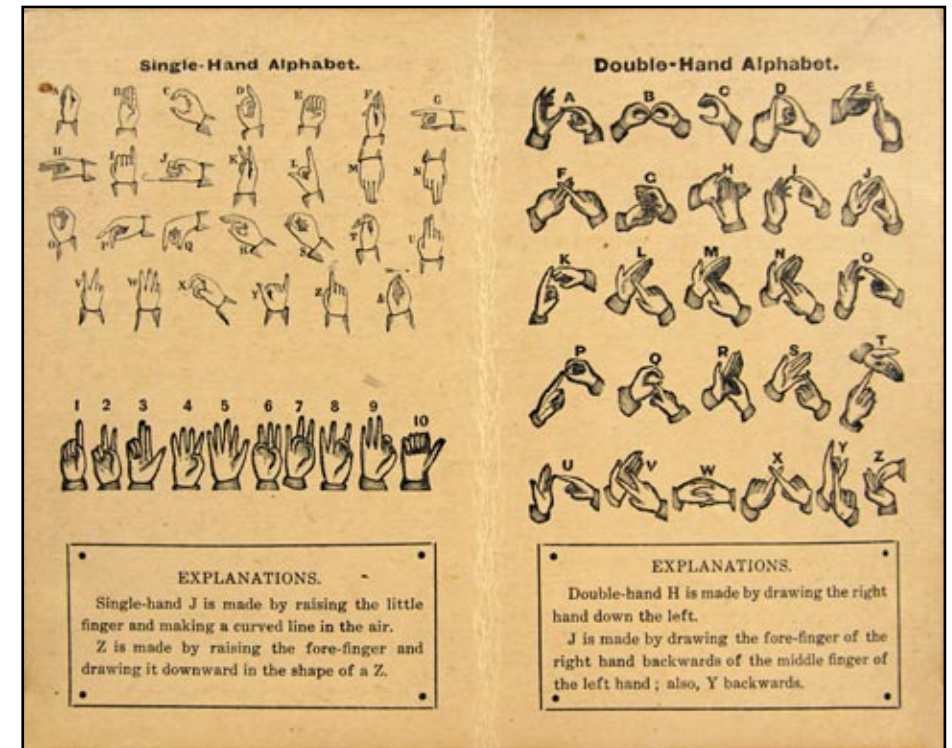 Single-Hand Alphabet.
A B C D E F G
H I J K L M N
O P Q R S T U
V W X Y Z &
1 2 3 4 5 6 7 8 9 10
EXPLANATIONS.
Single-hand J is made by raising the little
finger and making a curved line in the air.
Z is made by raising the fore-finger and
drawing it downward in the shape of a Z.
Double-Hand Alphabet.
A B C D E
F G H I J
K L M N O
P Q R S T
U V W X Y Z
EXPLANATIONS.
Double-hand H is made by drawing the right
hand down the left.
J is made by drawing the fore-finger of the
right hand backwards of the middle finger of
the left hand ; also, Y backwards.